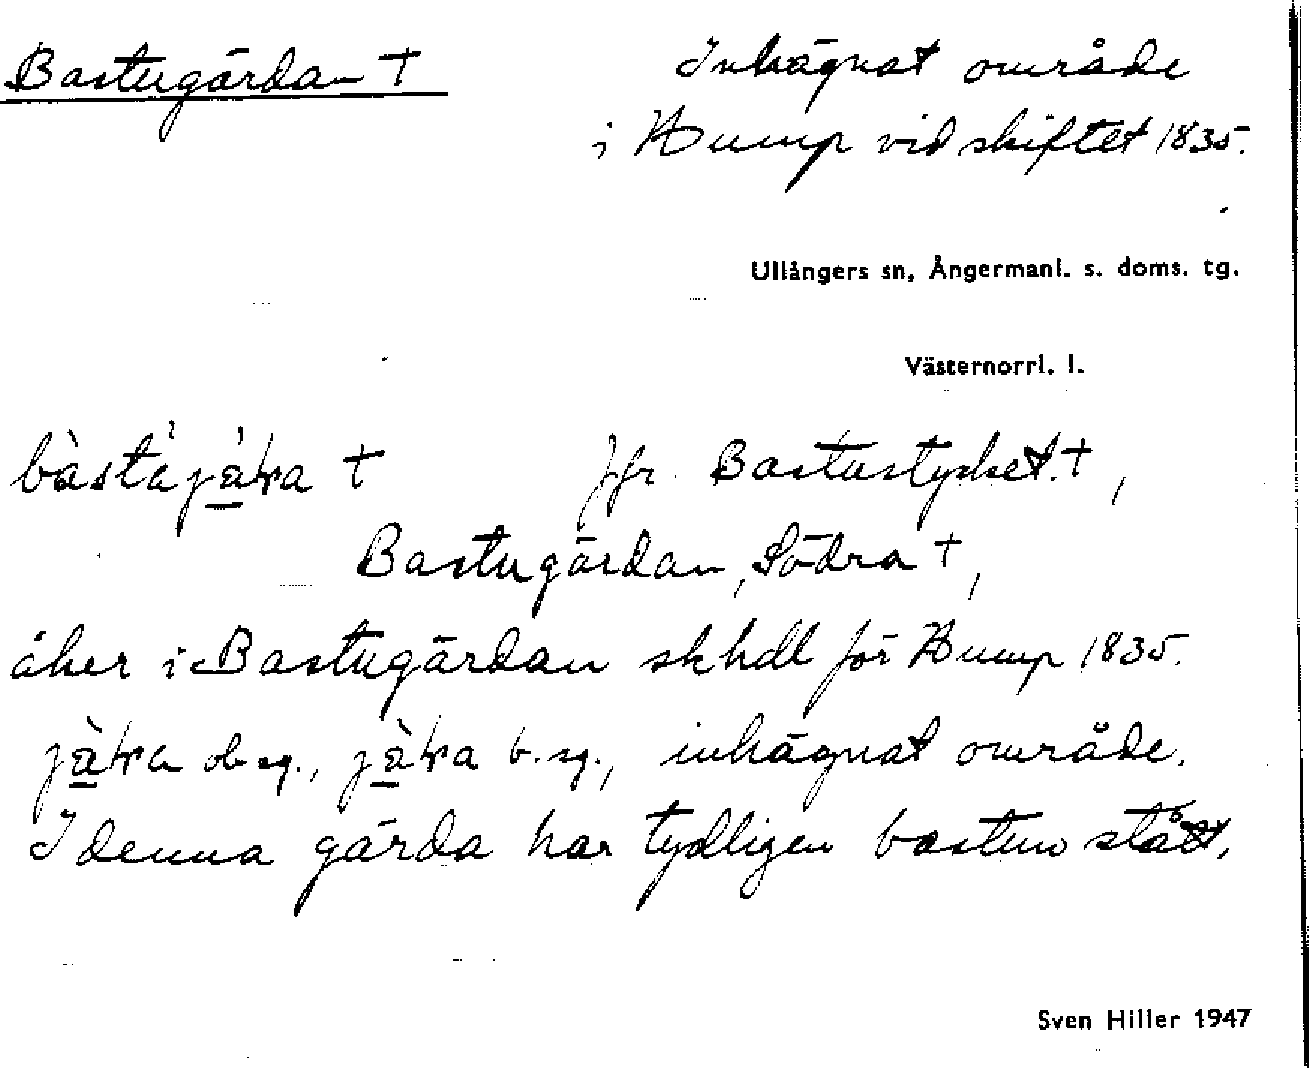 Bastugärdan †
Inhägnat område
i Hump vid skiftet 1835.
Ullångers sn, Ångermanl. s. doms. tg.
Västernorrl. l.
† jfr Bastustycket †,
Bastugärdan, Södra †,
åker i Bastugärdan skhdl för Hump 1835.
ob sg., b. sg., inhägnat område.
I denna gärda har tydligen bastun stått.
Sven Hiller 1947